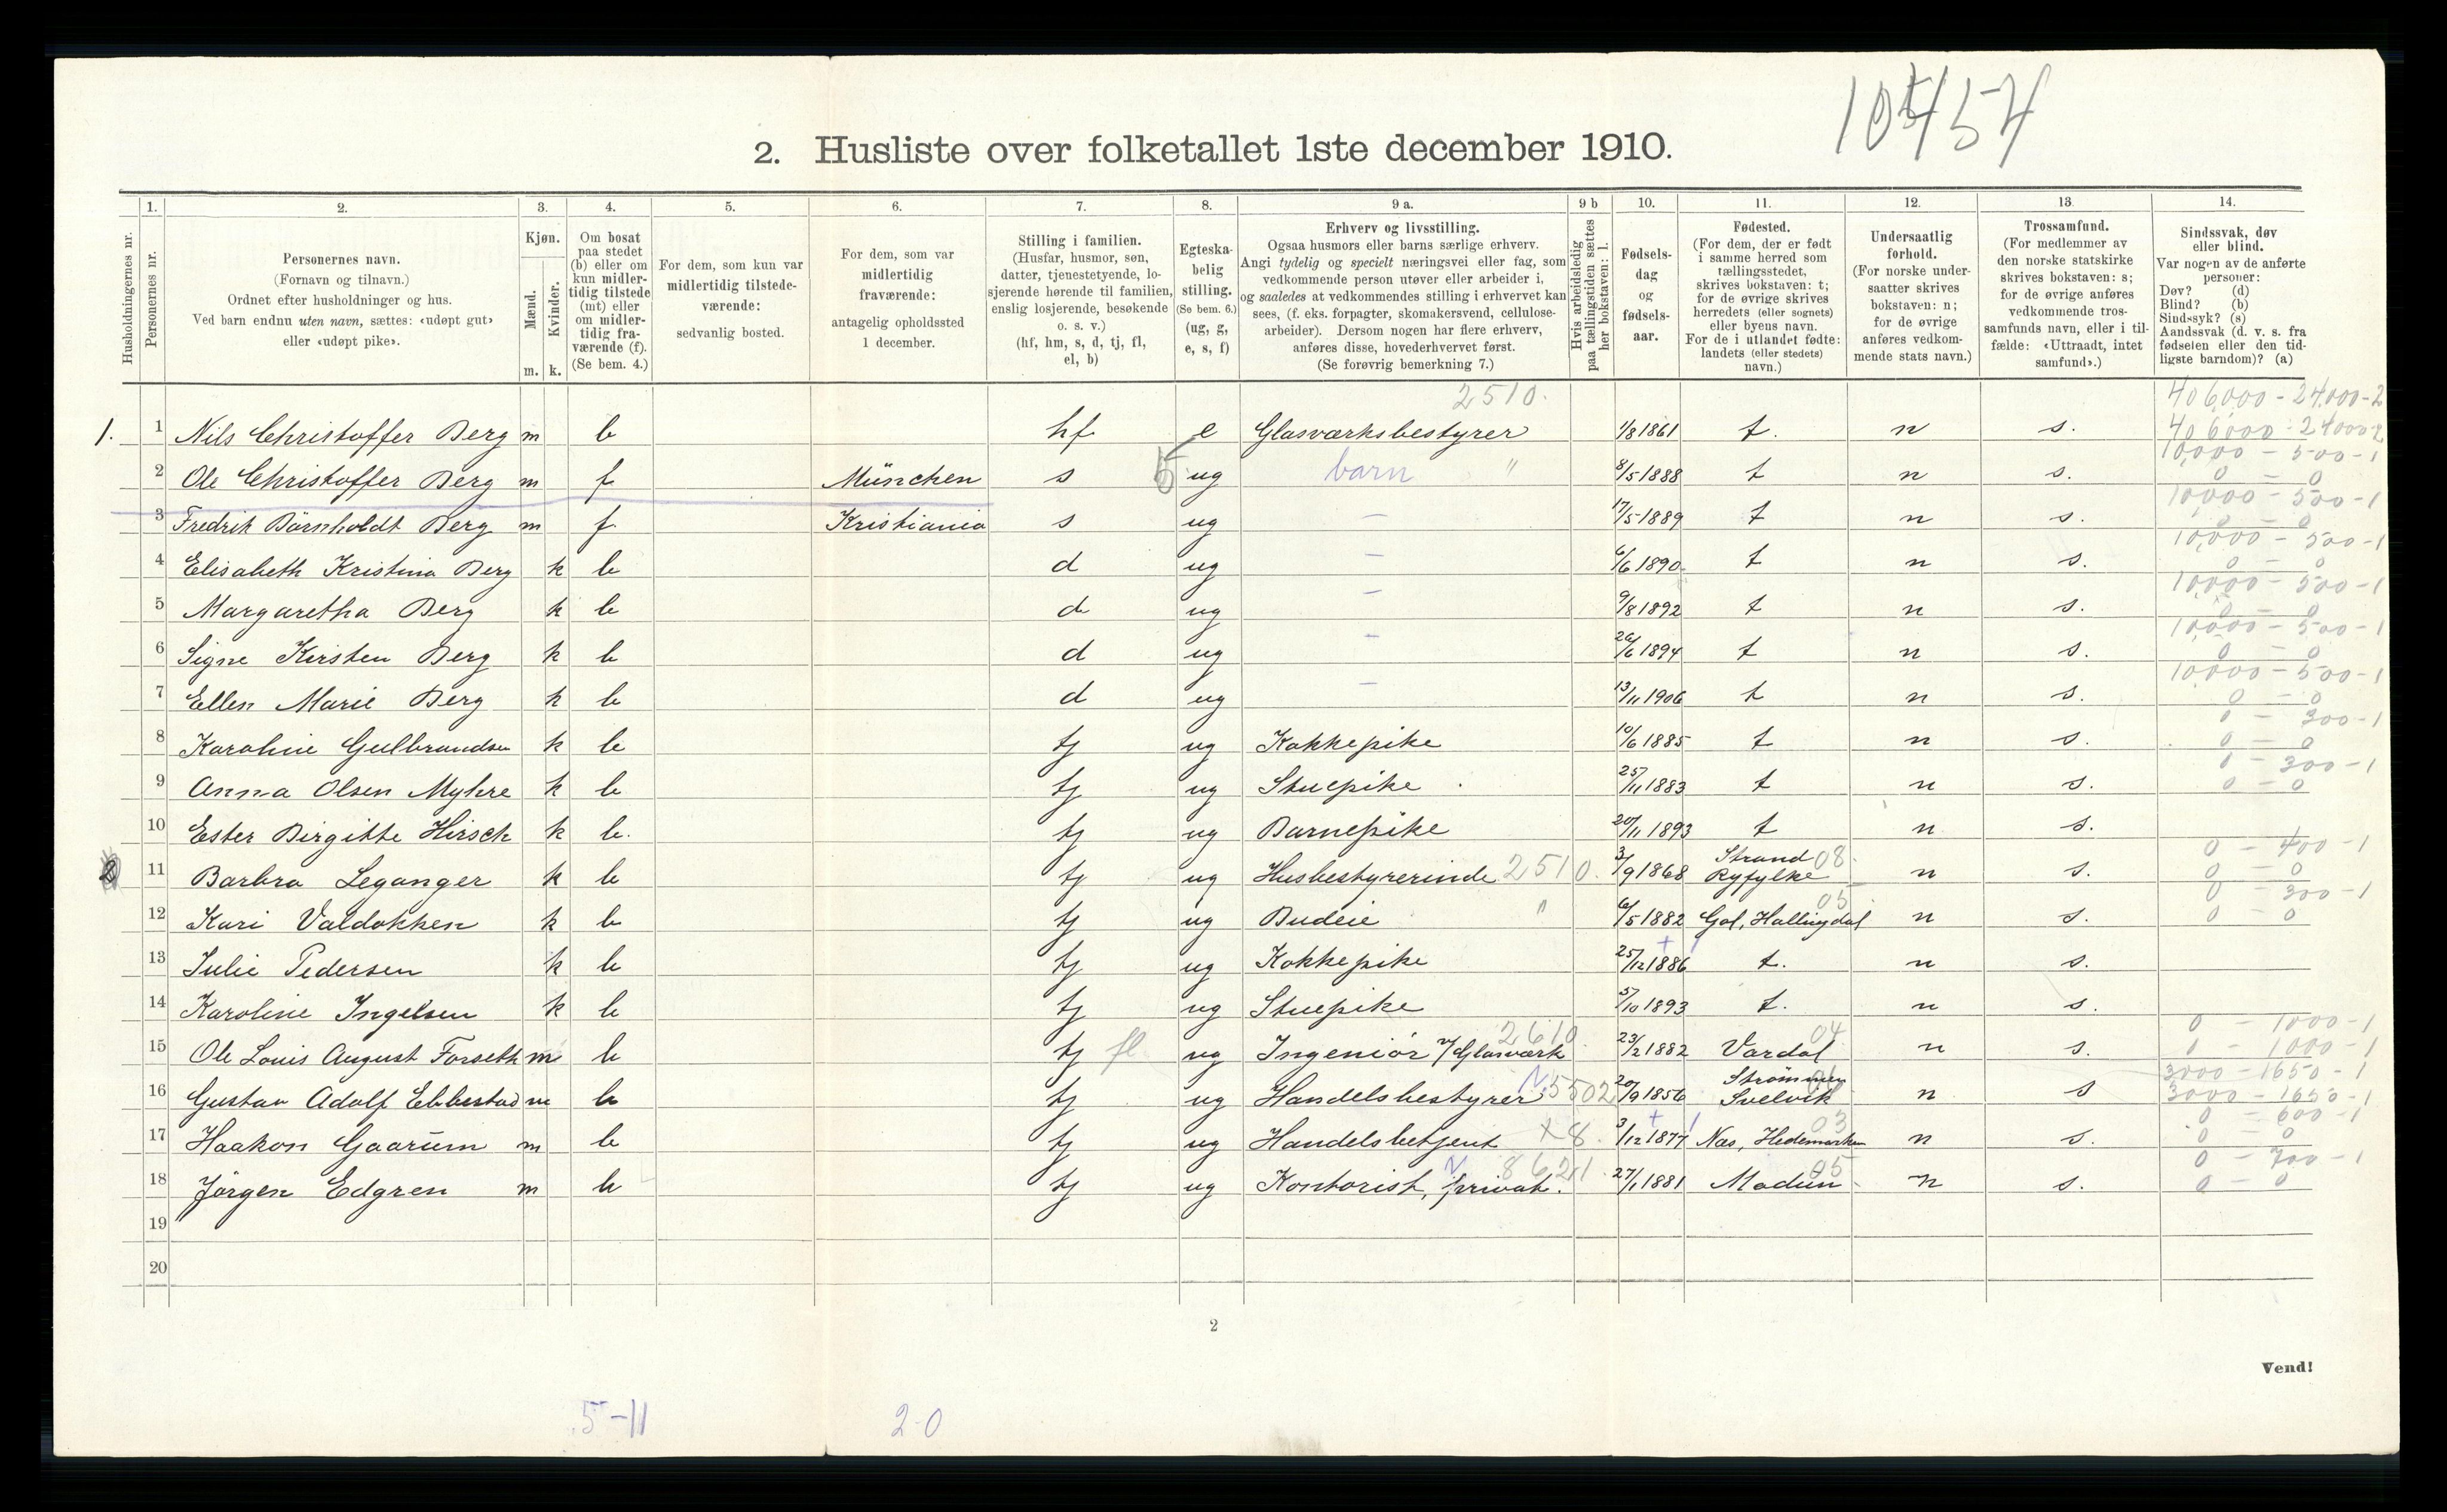 10457
2. Husliste over folketallet 1ste december 1910.
Husholdningernes nr.
1. Personernes nr.
2. Personernes navn. (Fornavn og tilnavn.) Ordnet efter husholdninger og hus. Ved barn endnu uten navn, sættes: «udøpt gut» eller «udøpt pike».
3. Kjøn. Mænd. m. Kvinder. k.
4. Om bosat paa stedet (b) eller om kun midlertidig tilstede (mt) eller om midlertidig fraværende (f). (Se bem. 4.)
5. For dem, som kun var midlertidig tilstedeværende: sedvanlig bosted.
6. For dem, som var midlertidig fraværende: antagelig opholdssted 1 december.
7. Stilling i familien. (Husfar, husmor, søn, datter, tjenestetyende, losjerende hørende til familien, enslig losjerende, besøkende o. s. v.) (hf, hm, s, d, tj, fl, el, b)
8. Egteskabelig stilling. (Se bem. 6.) (ug, g, e, s, f)
9 a. Erhverv og livsstilling. Ogsaa husmors eller barns særlige erhverv. Angi tydelig og specielt næringsvei eller fag, som vedkommende person utøver eller arbeider i, og saaledes at vedkommendes stilling i erhvervet kan sees, (f. eks. forpagter, skomakersvend, cellulosearbeider). Dersom nogen har flere erhverv, anføres disse, hovederhvervet først. (Se forøvrig bemerkning 7.)
9 b Hvis arbeidsledig paa tællingstiden sættes her bokstaven: l.
10. Fødselsdag og fødselsaar.
11. Fødested. (For dem, der er født i samme herred som tællingsstedet, skrives bokstaven: t; for de øvrige skrives herredets (eller sognets) eller byens navn. For de i utlandet fødte: landets (eller stedets) navn.)
12. Undersaatlig forhold. (For norske undersaatter skrives bokstaven: n; for de øvrige anføres vedkommende stats navn.)
13. Trossamfund. (For medlemmer av den norske statskirke skrives bokstaven: s; for de øvrige anføres vedkommende trossamfunds navn, eller i tilfælde: «Uttraadt, intet samfund».)
14. Sindssvak, døv eller blind. Var nogen av de anførte personer: Døv? (d) Blind? (b) Sindssyk? (s) Aandssvak (d. v. s. fra fødselen eller den tidligste barndom)? (a)
2510. 406000 - 24000-2
1. 1 Nils Christoffer Berg m b hf e Glasværksbestyrer 1/8 1861 t. n s. 406000 - 24000-2
10,000 - 500-1
2 Ole Christoffer Berg m f München s 5 ug barn " 8/5 1888 t n s. 0 - 0
10,000 - 500-1
3 Fredrik Börnholdt Berg m f Kristiania s ug - 17/5 1889 t n s. 0 - 0
10,000 - 500-1
4 Elisabeth Kristina Berg k b d ug - 6/6 1890 t n s. 0 - 0
10,000 - 500-1
5 Margaretha Berg k b d ug - 9/8 1892 t n s. 0 - 0
10,000 - 500-1
6 Signe Kirsten Berg k b d ug - 26/6 1894 t n s. 0 - 0
10000 - 500-1
7 Ellen Marie Berg k b d ug - 13/11 1906 t n s. 0 - 0
0 - 300-1
8 Karoline Gulbrandsen k b tj ug Kokkepike 10/6 1885 t n s. 0 - 0
0 - 300-1
9 Anna Olsen Myhre k b tj ug Stuepike 25/11 1883 t n s. 0 - 0
10 Ester Birgitte Hirsch k b. tj ug Barnepike 20/11 1893 t n s.
0 - 400-1
11 Barbra Leganger k b tj ug Husbestyrerinde 2510. 3/9 1868 Strand Ryfylke 08 n s. 0 - 0
0 - 300-1
12 Kari Valdokken k b tj ug Budeie " 6/5 1882 Gol, Hallingdal 05 n s. 0 - 0
13 Julie Pedersen k b tj ug Kokkepike 25/12 1886 t. n s.
14 Karoline Ingelsen k b tj ug Stuepike 5/10 1893 t. n s.
0 - 1000-1
15 Ole Louis August Forseth m b tj fl ug Ingeniör v/ Glasværk 2610 23/2 1882 Vardal 04 n s. 0 - 1000-1
3000 - 1650-1
16 Gustav Adolf Ebbestad m b tj ug Handelsbestyrer 5502 20/9 1856 Strömmen Svelvik n s 3000 - 1650-1
0 - 600-1
17 Haakon Gaarum m b tj ug Handelsbetjent x8. 3/12 1877 Nas, Hedemarken 03 n s. 0 - 0
0 - 700-1
18 Jörgen Edgren m b tj ug Kontorist, privat. 8621 27/1 1881 Modum 05 n s. 0 - 0
19
20
2
Vend!
5-11
2-0